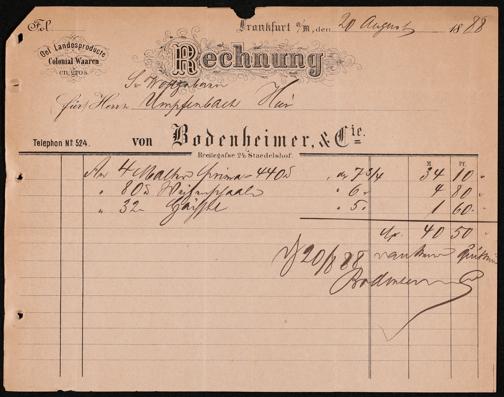 Fol.
Frankfurt a/M, den 20 August 1888
Oel Landesproducte
Colonial Waaren
en gros.
Rechnung
für Herrn Umpfenbach Hier
Telephon Nº 524.
von Bodenheimer, & Cie.
Breitegasse 24 Staedelshof.
M Pf.
An 4 Malter prima 440 a 7 3/4 34 10
" 80 " 6 4 80
" 32 " 5 1 60
40 50
20/8 88